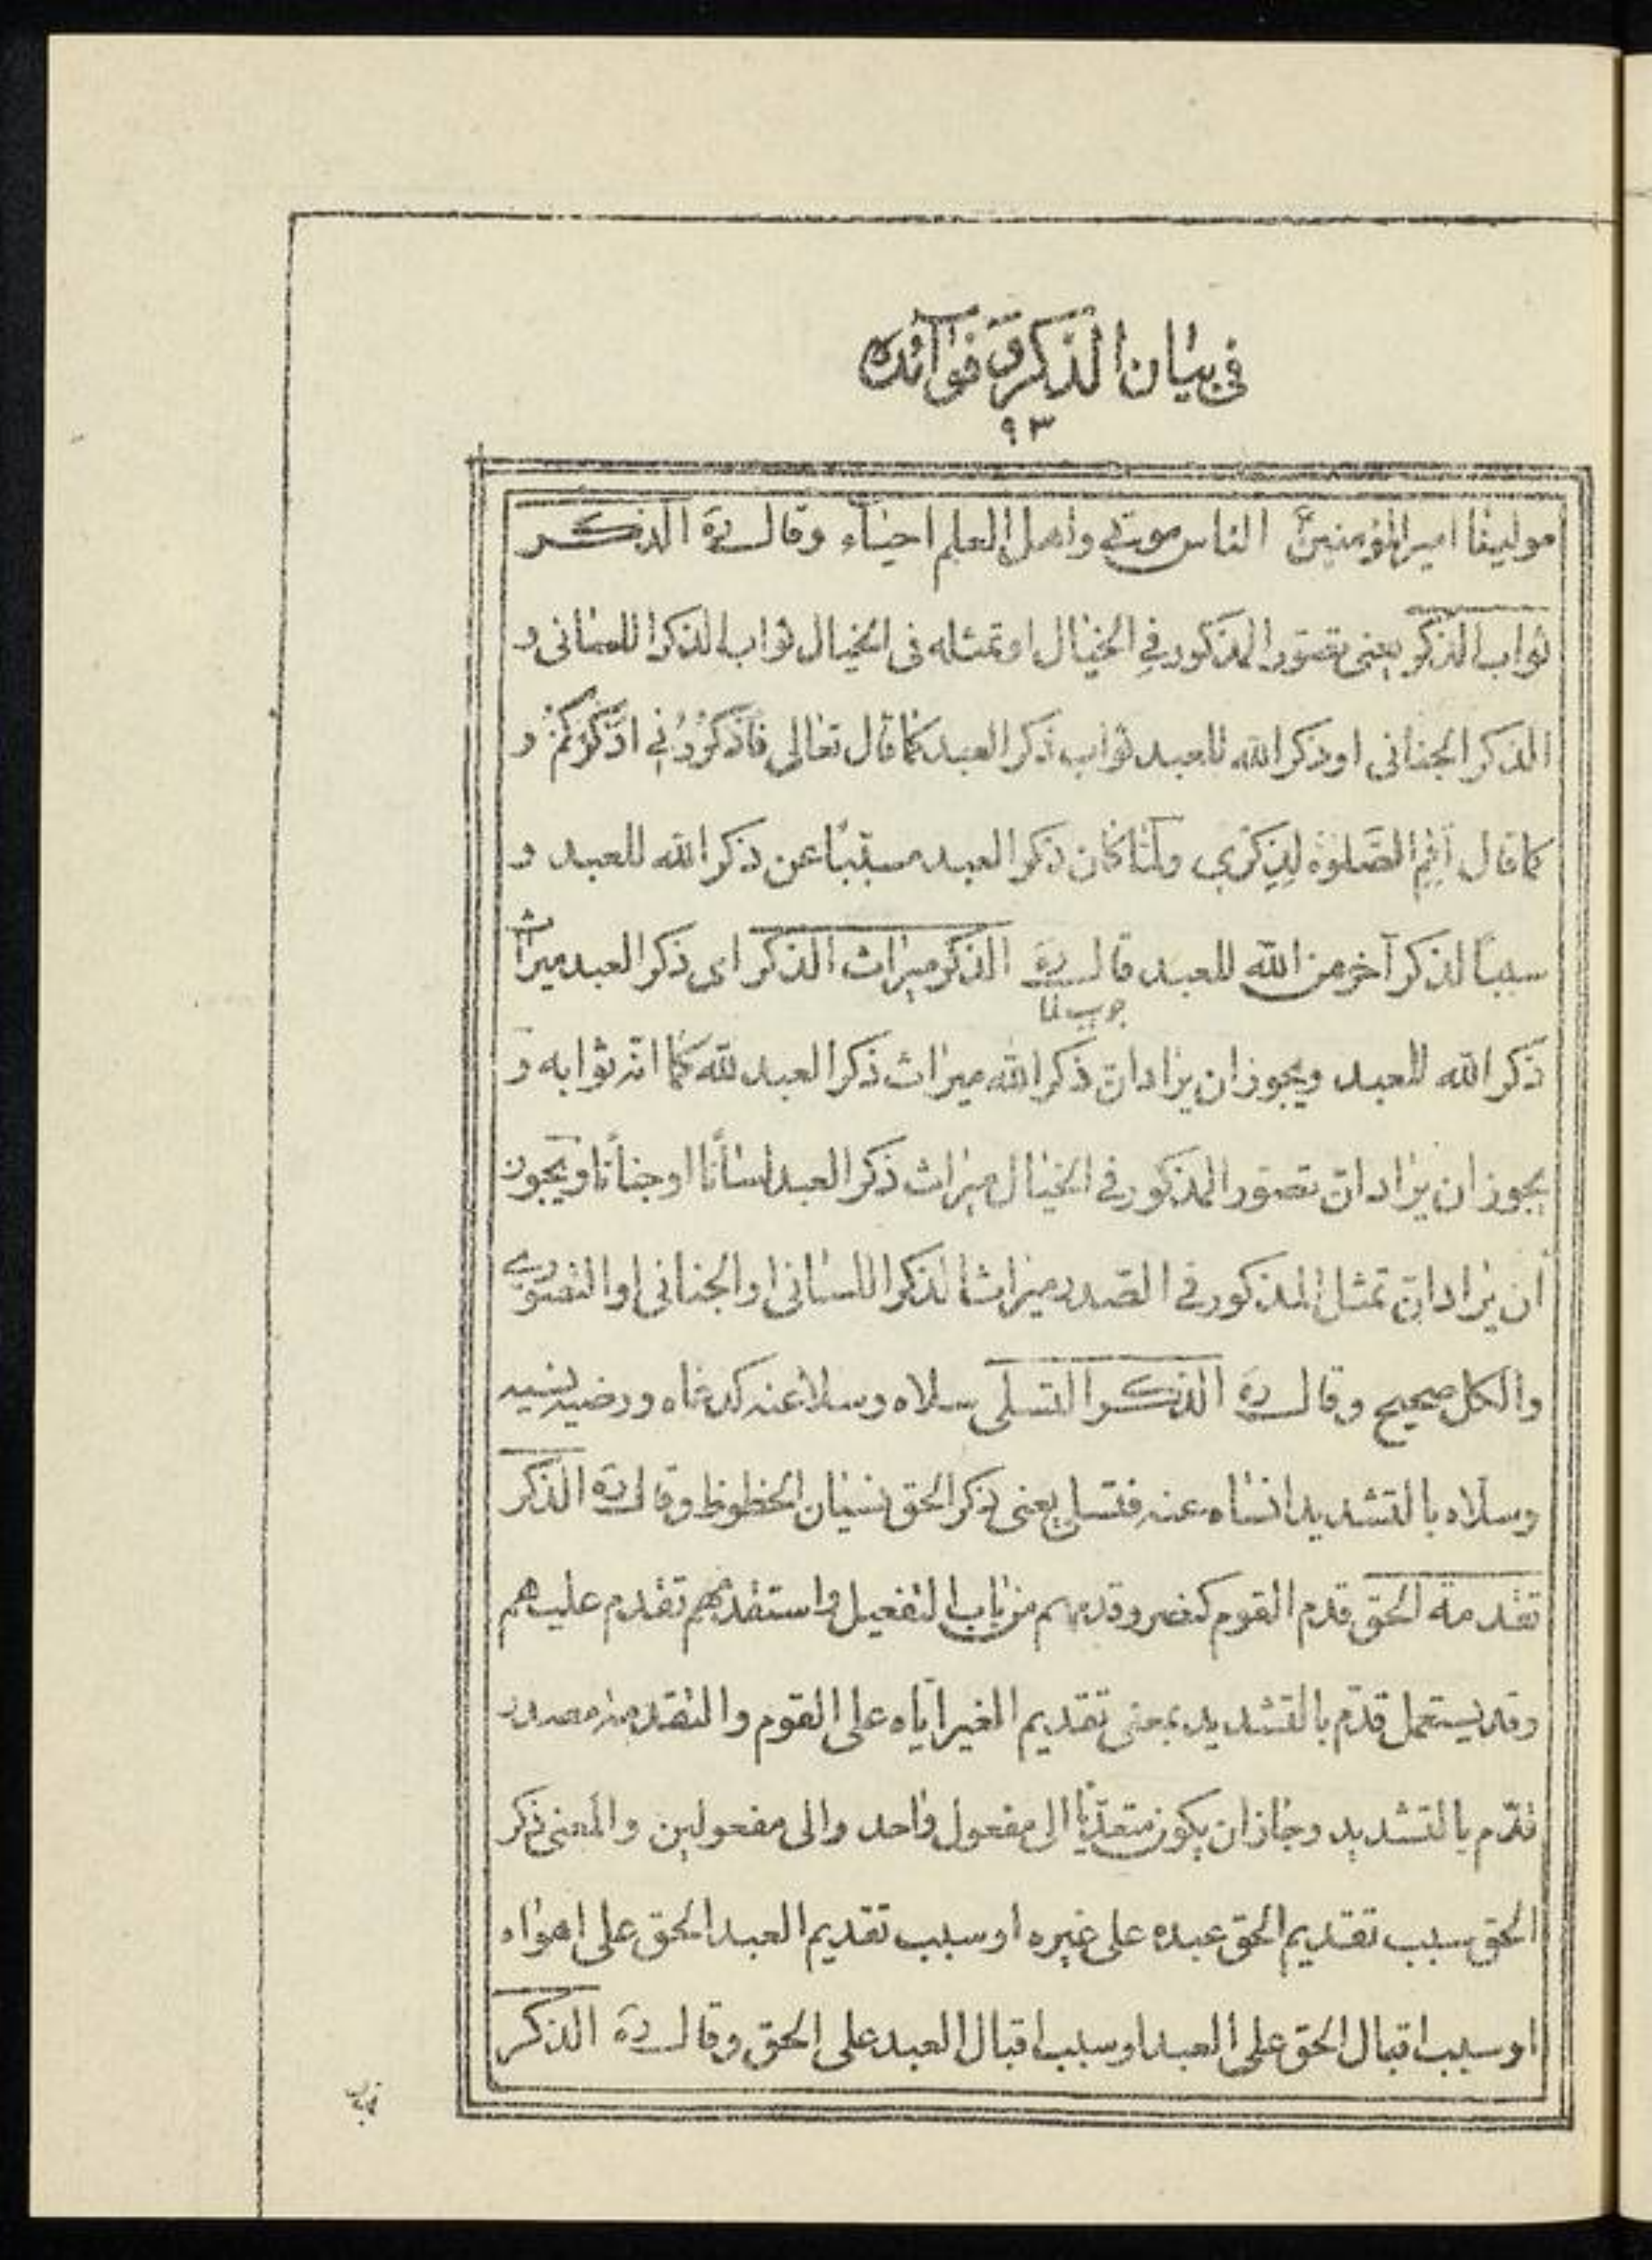 في بيان الذكر وفوآئده
٩٣
مولينا اميرالمؤمنينؑ الناس موتى واهل العلم احيآء وقال رَه الذكر
ثواب الذكر يعنى تصوّر المذكور في الخيال او تمثله فى الخيال ثواب الذكر اللسانى و
الذكر الجنانى او ذكر الله للعبد ثواب ذكر العبد كما قال تعالى فَاذْكُرُونِي اَذْكُرْكُمْ و
كما قال اَقِمِ الصَّلوٰةَ لِذِكْرِي ولمّا كان ذكر العبد مسبّبًا عن ذكر الله للعبد و
سببًا لذكر آخر من الله للعبد قال رَه الذكر ميراث الذكر اى ذكر العبد ميراث
جوب لما
ذكر الله للعبد ويجوز ان يراد انّ ذكر الله ميراث ذكر العبد لله كما انّه ثوابه و
يجوز ان يراد انّ تصوّر المذكور في الخيال ميراث ذكر العبد لسانًا او جنانًا ويجوز
ان يراد انّ تمثل المذكور في الصّدر ميراث الذكر اللسانى او الجنانى او التصوّرى
والكل صحيح وقال رَه الذكر التسلى سلاه وسلا عنه كدعاه ورضيه نسيه
وسلّاه بالتشديد انساه عنه فتسلى يعنى ذكر الحق نسيان الحظوظ وقال رَه الذكر
تقدمة الحق قدم القوم كنصر وقدمهم من باب التفعيل واستقدمهم تقدم عليهم
وقد يستعمل قدّم بالتشديد بمعنى تقديم الغير ايّاه على القوم والتقدمة مصدر
قدّم بالتشديد وجاز ان يكون متعدّيًا الى مفعول واحد والى مفعولين والمعنى ذكر
الحق سبب تقديم الحق عبده على غيره او سبب تقديم العبد الحق على اهواه
او سبب اقبال الحق على العبد او سبب اقبال العبد على الحق وقال رَه الذكر